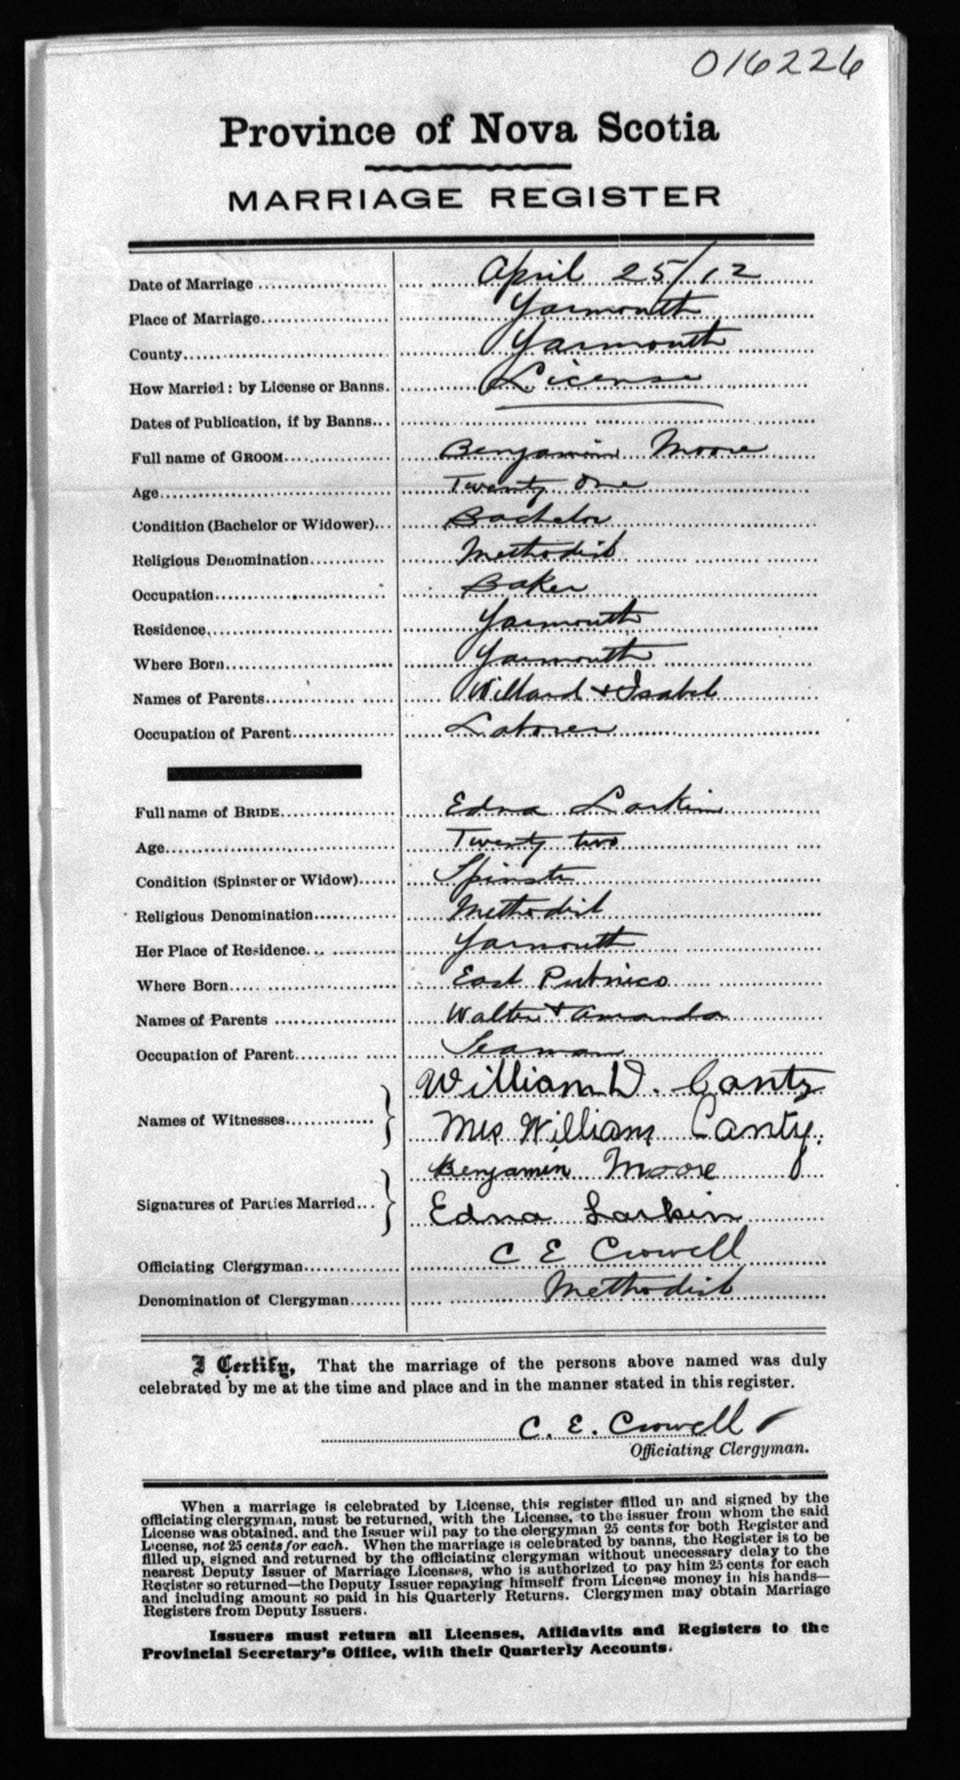 016226
Province of Nova Scotia
MARRIAGE REGISTER
Date of Marriage April 25/12
Place of Marriage Yarmouth
County Yarmouth
How Married: by License or Banns. License
Dates of Publication, if by Banns
Full name of GROOM Benjamin Moore
Age Twenty One
Condition (Bachelor or Widower) Bachelor
Religious Denomination Methodist
Occupation Baker
Residence Yarmouth
Where Born Yarmouth
Names of Parents Willard + Isabel
Occupation of Parent Laborer
Full name of BRIDE Edna Larkin
Age Twenty two
Condition (Spinster or Widow) Spinster
Religious Denomination Methodist
Her Place of Residence Yarmouth
Where Born East Pubnico
Names of Parents Walter + Amanda
Occupation of Parent Seaman
William D. Canty
Names of Witnesses
Mrs William Canty.
Benjamin Moore
Signatures of Parties Married
Edna Larkin
Officiating Clergyman C E Crowell
Denomination of Clergyman Methodist
I Certify, That the marriage of the persons above named was duly
celebrated by me at the time and place and in the manner stated in this register.
C. E. Crowell
Officiating Clergyman.
When a marriage is celebrated by License, this register filled up and signed by the
officiating clergyman, must be returned, with the License, to the issuer from whom the said
License was obtained, and the Issuer will pay to the clergyman 25 cents for both Register and
License, not 25 cents for each. When the marriage is celebrated by banns, the Register is to be
filled up, signed and returned by the officiating clergyman without unnecessary delay to the
nearest Deputy Issuer of Marriage Licenses, who is authorized to pay him 25 cents for each
Register so returned—the Deputy Issuer repaying himself from License money in his hands—
and including amount so paid in his Quarterly Returns. Clergymen may obtain Marriage
Registers from Deputy Issuers.
Issuers must return all Licenses, Affidavits and Registers to the
Provincial Secretary's Office, with their Quarterly Accounts.